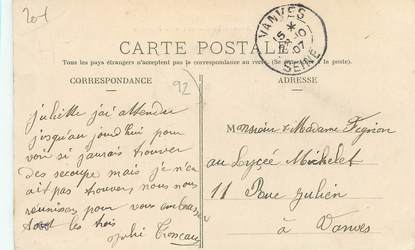 204
VANVES
15
28-10
07
SEINE
CARTE POSTALE
Tous les pays étrangers n'acceptent pas la correspondance au verso. (Se à la poste).
CORRESPONDANCE
92
ADRESSE
juliette j'ai attendu
jusqu'au jourd'hui pour
voir si jaurais trouver
des secoupe mais je n'en
ait pas trouver nous nous
reunisson pour vous embras
les trois
julie
Monsieur & Madame
au Lycée Michelet
11 Rue Julien
à Vanves